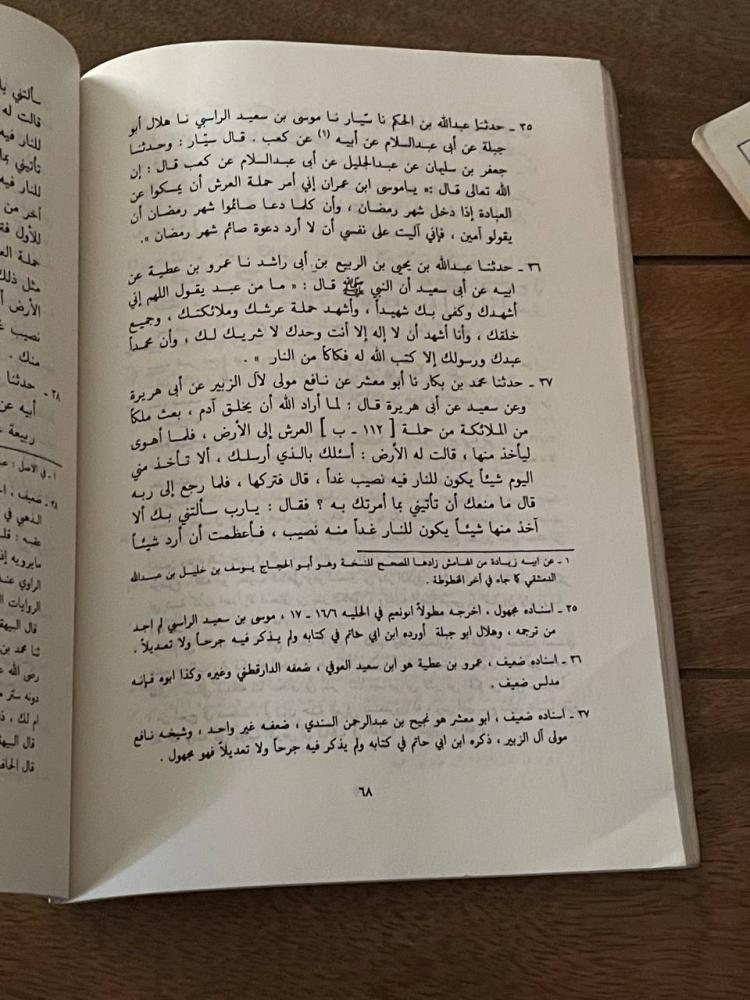 ٣٥ ـ حدثنا عبدالله بن الحكم نا سيّار نا موسى بن سعيد الراسي نا هلال أبو
جبلة عن أبى عبدالسلام عن أبيه (١) عن كعب . قال سيّار : وحدثنا
جعفر بن سليمان عن عبدالجليل عن أبى عبدالسلام عن كعب قال : إن
الله تعالى قال :« ياموسى ابن عمران إني أمر حملة العرش أن يمسكوا عن
العبادة إذا دخل شهر رمضان ، وأن كلما دعا صائموا شهر رمضان أن
يقولو آمين ، فإني آليت على نفسي أن لا أرد دعوة صائم شهر رمضان ».
٣٦ ـ حدثنا عبدالله بن يحيى بن الربيع بن أبى راشد نا عمرو بن عطية عن
ابيه عن أبى سعيد أن النبي ﷺ قال : « ما من عبد يقول اللهم إني
أشهدك وكفى بك شهيداً ، وأشهد حملة عرشك وملائكتك ، وجميع
خلقك ، وأنا أشهد أن لا إله إلا أنت وحدك لا شريك لك ، وأن محمداً
عبدك ورسولك إلا كتب الله له فكاكاً من النار » .
٣٧ ـ حدثنا محمد بن بكار نا أبو معشر عن نافع مولى لآل الزبير عن أبى هريرة
وعن سعيد عن أبى هريرة قال : لما أراد الله أن يخلق آدم ، بعث ملكاً
من الملائكة من حملة [ ١١٢ ـ ب ] العرش إلى الأرض ، فلما أهوى
ليأخذ منها ، قالت له الأرض : أسئلك بالذي أرسلك ، ألا تأخذ مني
اليوم شيئاً يكون للنار فيه نصيب غداً ، قال فتركها ، فلما رجع إلى ربه
قال ما منعك أن تأتيني بما أمرتك به ؟ فقال : يارب سألتني بك ألا
آخذ منها شيئاً يكون للنار غداً منه نصيب ، فأعظمت أن أرد شيئاً
١ ـ عن ابيه زيادة من الهامش زادها المصحح للنسخة وهو أبو الحجاج يوسف بن خليل بن عبدالله
الدمشقي كما جاء في آخر المخطوطة .
٣٥ ـ اسناده مجهول ، اخرجه مطولاً ابونعيم في الحليه ١٦/٦ ـ ١٧ ، موسى بن سعيد الراسي لم اجد
من ترجمه ، وهلال ابو جبلة أورده ابن ابي حاتم في كتابه ولم يذكر فيه جرحاً ولا تعديلاً .
٣٦ ـ اسناده ضعيف ، عمرو بن عطية هو ابن سعيد العوفي ، ضعفه الدارقطني وغيره وكذا ابوه فإنه
مدلس ضعيف .
٣٧ ـ اسناده ضعيف ، ابو معشر هو نجيح بن عبدالرحمن السندي ، ضعفه غير واحد ، وشيخه نافع
مولى آل الزبير ، ذكره ابن ابي حاتم في كتابه ولم يذكر فيه جرحاً ولا تعديلاً فهو مجهول .
٦٨